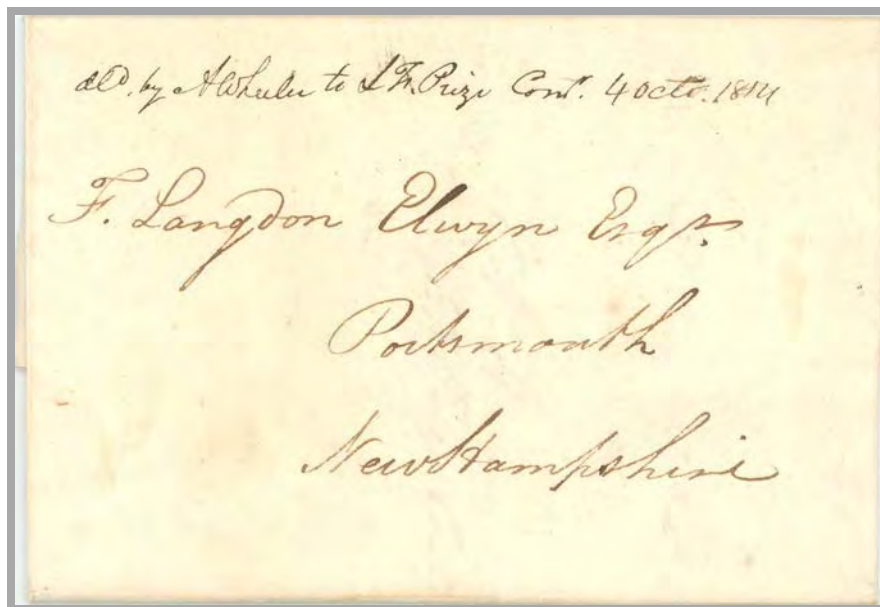 by AWheeler to 4 Octo. 1814
F. Langdon Elwyn Esqr.
Portsmouth
New Hampshire